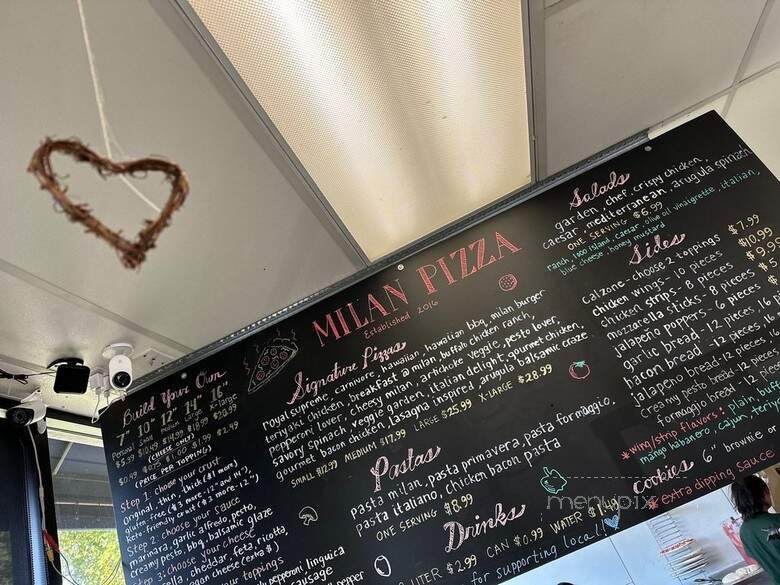 MILAN PIZZA
Established 2016
Build Your Own
7" 10" 12" 14" 16"
Personal Small Medium Large X-Large
(CHEESE ONLY)
(PRICE PER TOPPING)
Step 1: choose your crust
Original, thin, thick ($1 more)
Step 2: choose your sauce
marinara, garlic alfredo, pesto,
creamy pesto, bbq, balsamic glaze
Step 3: choose your cheese
cheddar, feta, ricotta
your toppings
pepperoni, linguica
sausage
pepper
Signature Pizzas
royal supreme, carnivore, hawaiian, hawaiian bbq, milan burger
teriyaki chicken, breakfast @ milan, buffalo chicken ranch,
pepperoni lover, cheesy milan, artichoke veggie, pesto lover,
savory spinach, veggie garden, italian delight, gourmet chicken,
gourmet bacon chicken, lasagna inspired, arugula balsamic craze
SMALL $12.99 MEDIUM $17.99 LARGE $25.99 X-LARGE $28.99
Pastas
pasta milan, pasta primavera, pasta formaggio,
pasta italiano, chicken bacon pasta
ONE SERVING $8.99
Drinks
LITER $2.99 CAN $0.99 WATER
for supporting local!
Salads
garden, chef, crispy chicken,
caesar, mediterranean, arugula spinach
ONE SERVING $6.99
ranch, 1000 island, caesar, olive oil vinaigrette, italian,
blue cheese, honey mustard
Sides
calzone - choose 2 toppings $7.99
chicken wings - 10 pieces $10.99
chicken strips - 8 pieces
mozzarella sticks - 8 pieces
jalapeño poppers - 6 pieces
garlic bread - 12 pieces
bacon bread - 12 pieces
jalapeño bread - 12 pieces
creamy pesto bread - 12
formaggio bread - 12
*wing/strip flavors: plain,
mango habanero, cajun
cookies 6" brownie or
*extra dipping sauce
menupix